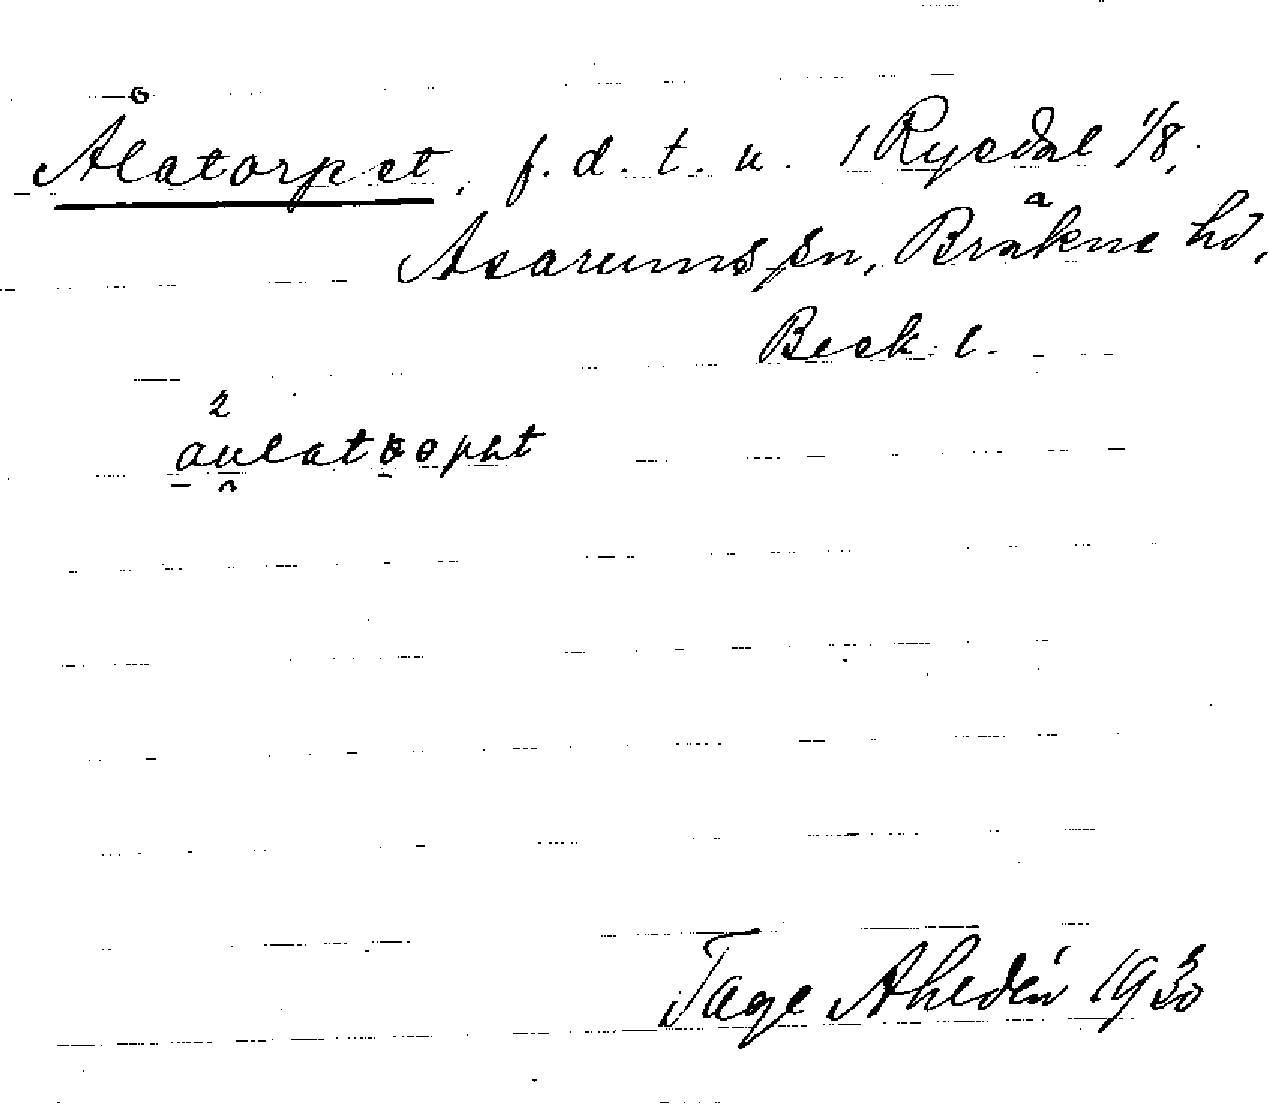 Ålatorpet, f.d.t. u. 1 Rysdal 1/8,
Asarums sn, Bräkne hd,
Blek. l.
Tage Ahldén 1930